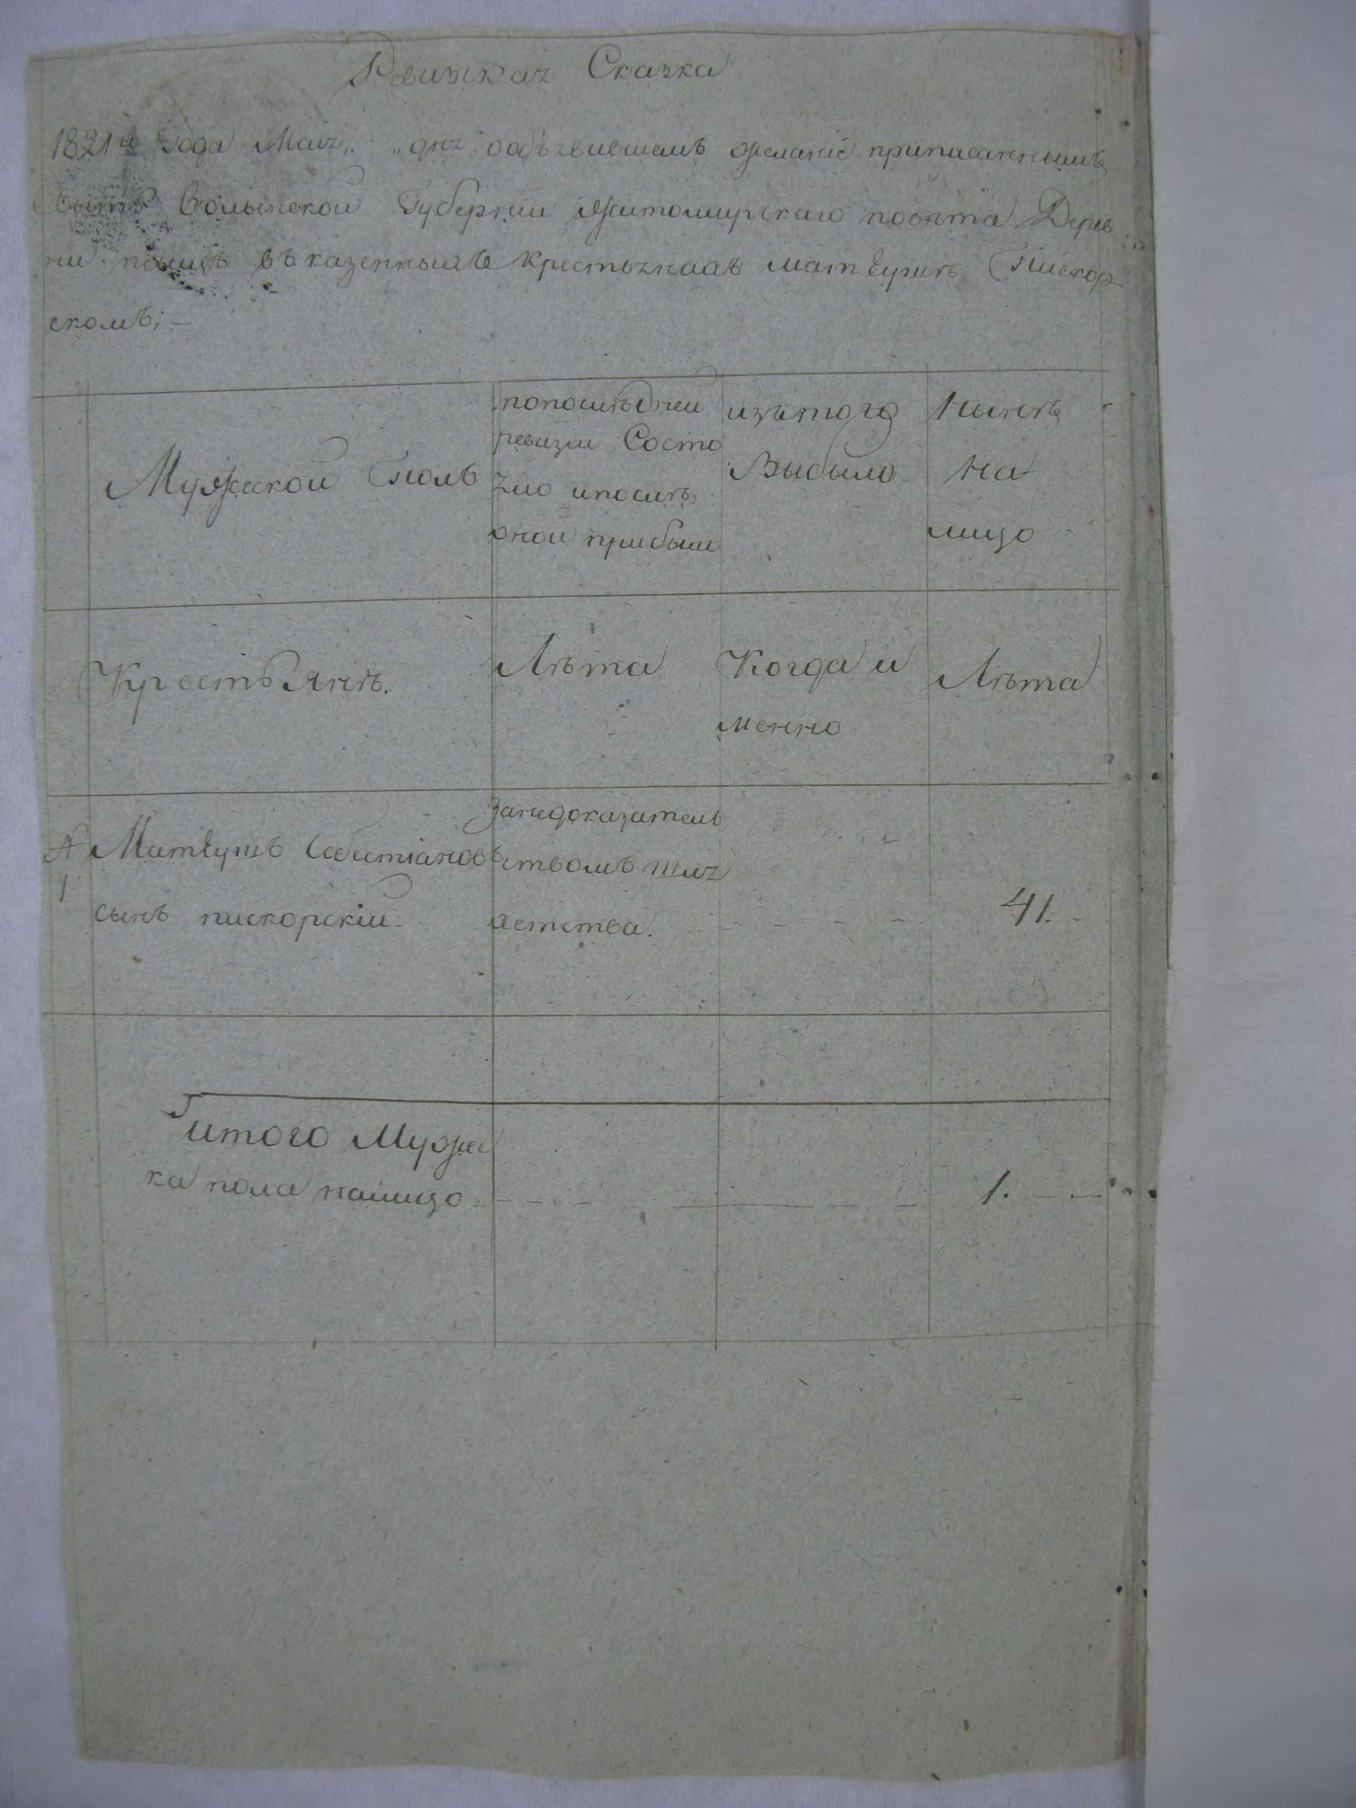 Ревизская Сказка
1821го года Маія „ „ дня объ объявившемъ желаніе приписаннымъ
быть Волынской Губерніи Житомирскаго повѣта Дерев
ни въ казенныхъ крестьянахъ Матеушѣ Пискор
скомъ; —
Мужеской полъ
по послѣдней
ревизіи Состо
яло и послѣ
оной прибыло
изъ того
Выбыло
Нынѣ
На
лицо
КрестьЯнѣ.
Лѣта
Когда и
менно
Лѣта
№
1
Матеушъ Себестіановъ
сынъ пискорскій
За недоказатель
ствомъ шля
хетства.
41.
итого Мужес
ка пола налицо
1.